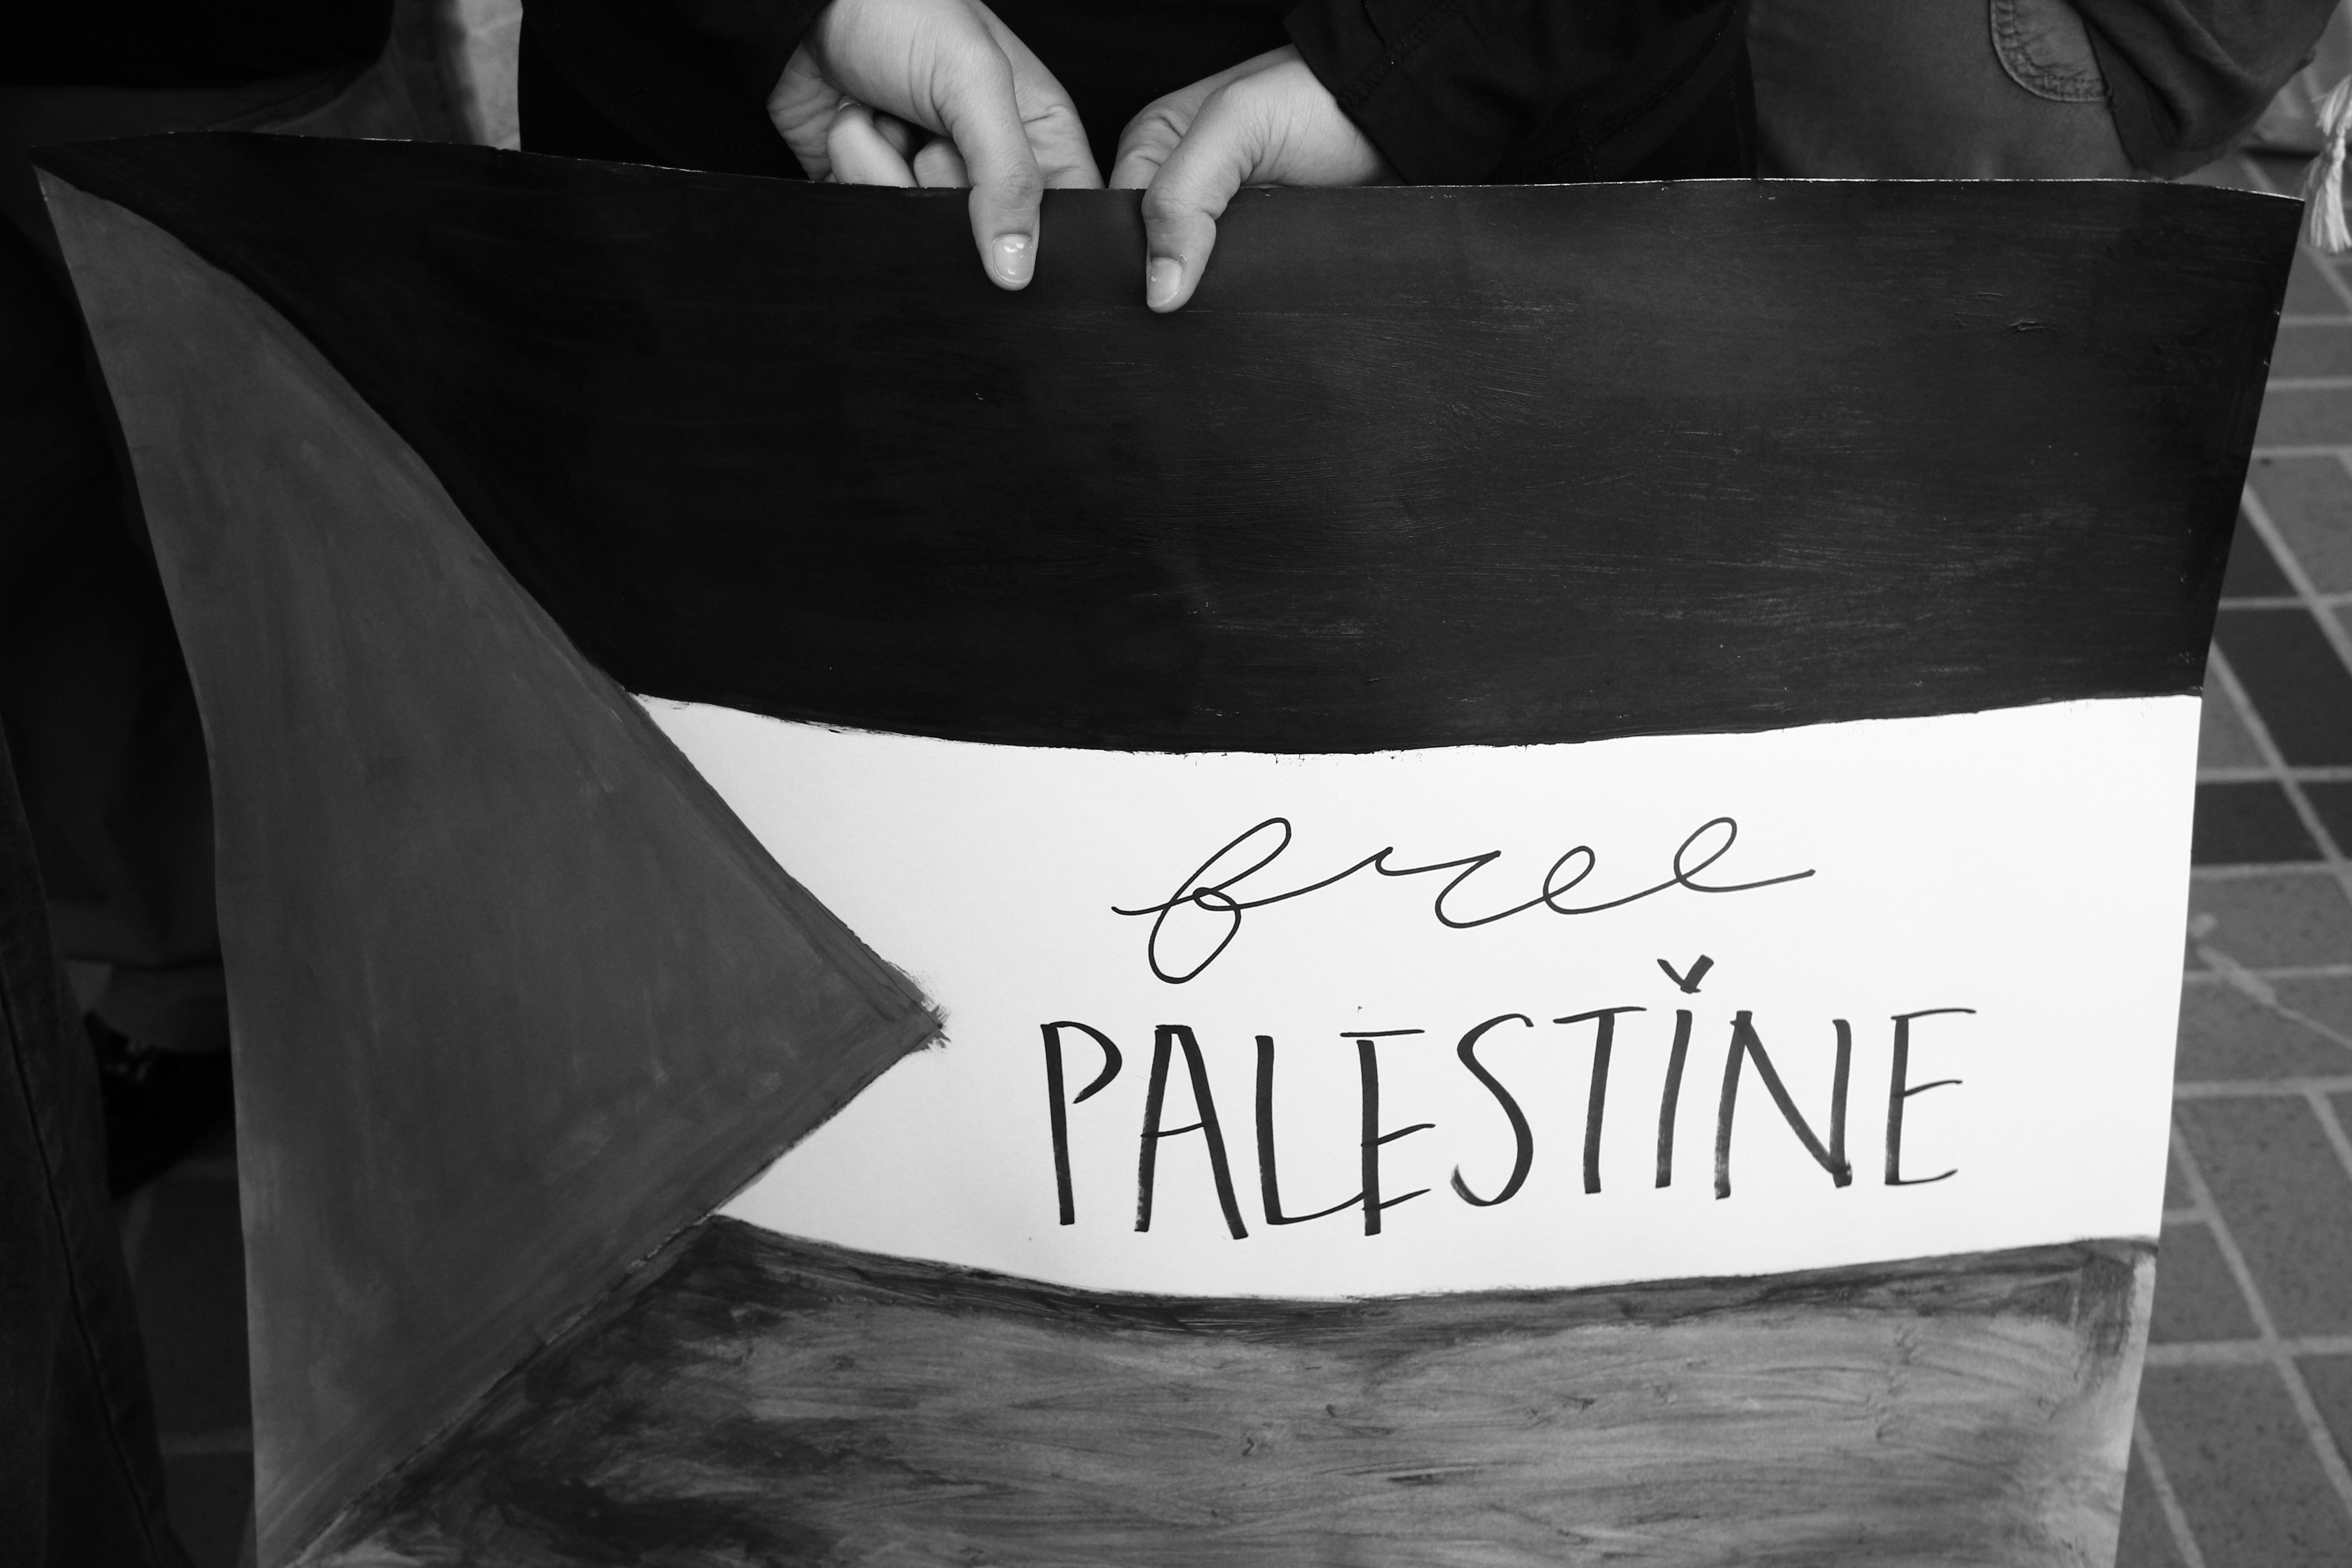 free
PALESTINE